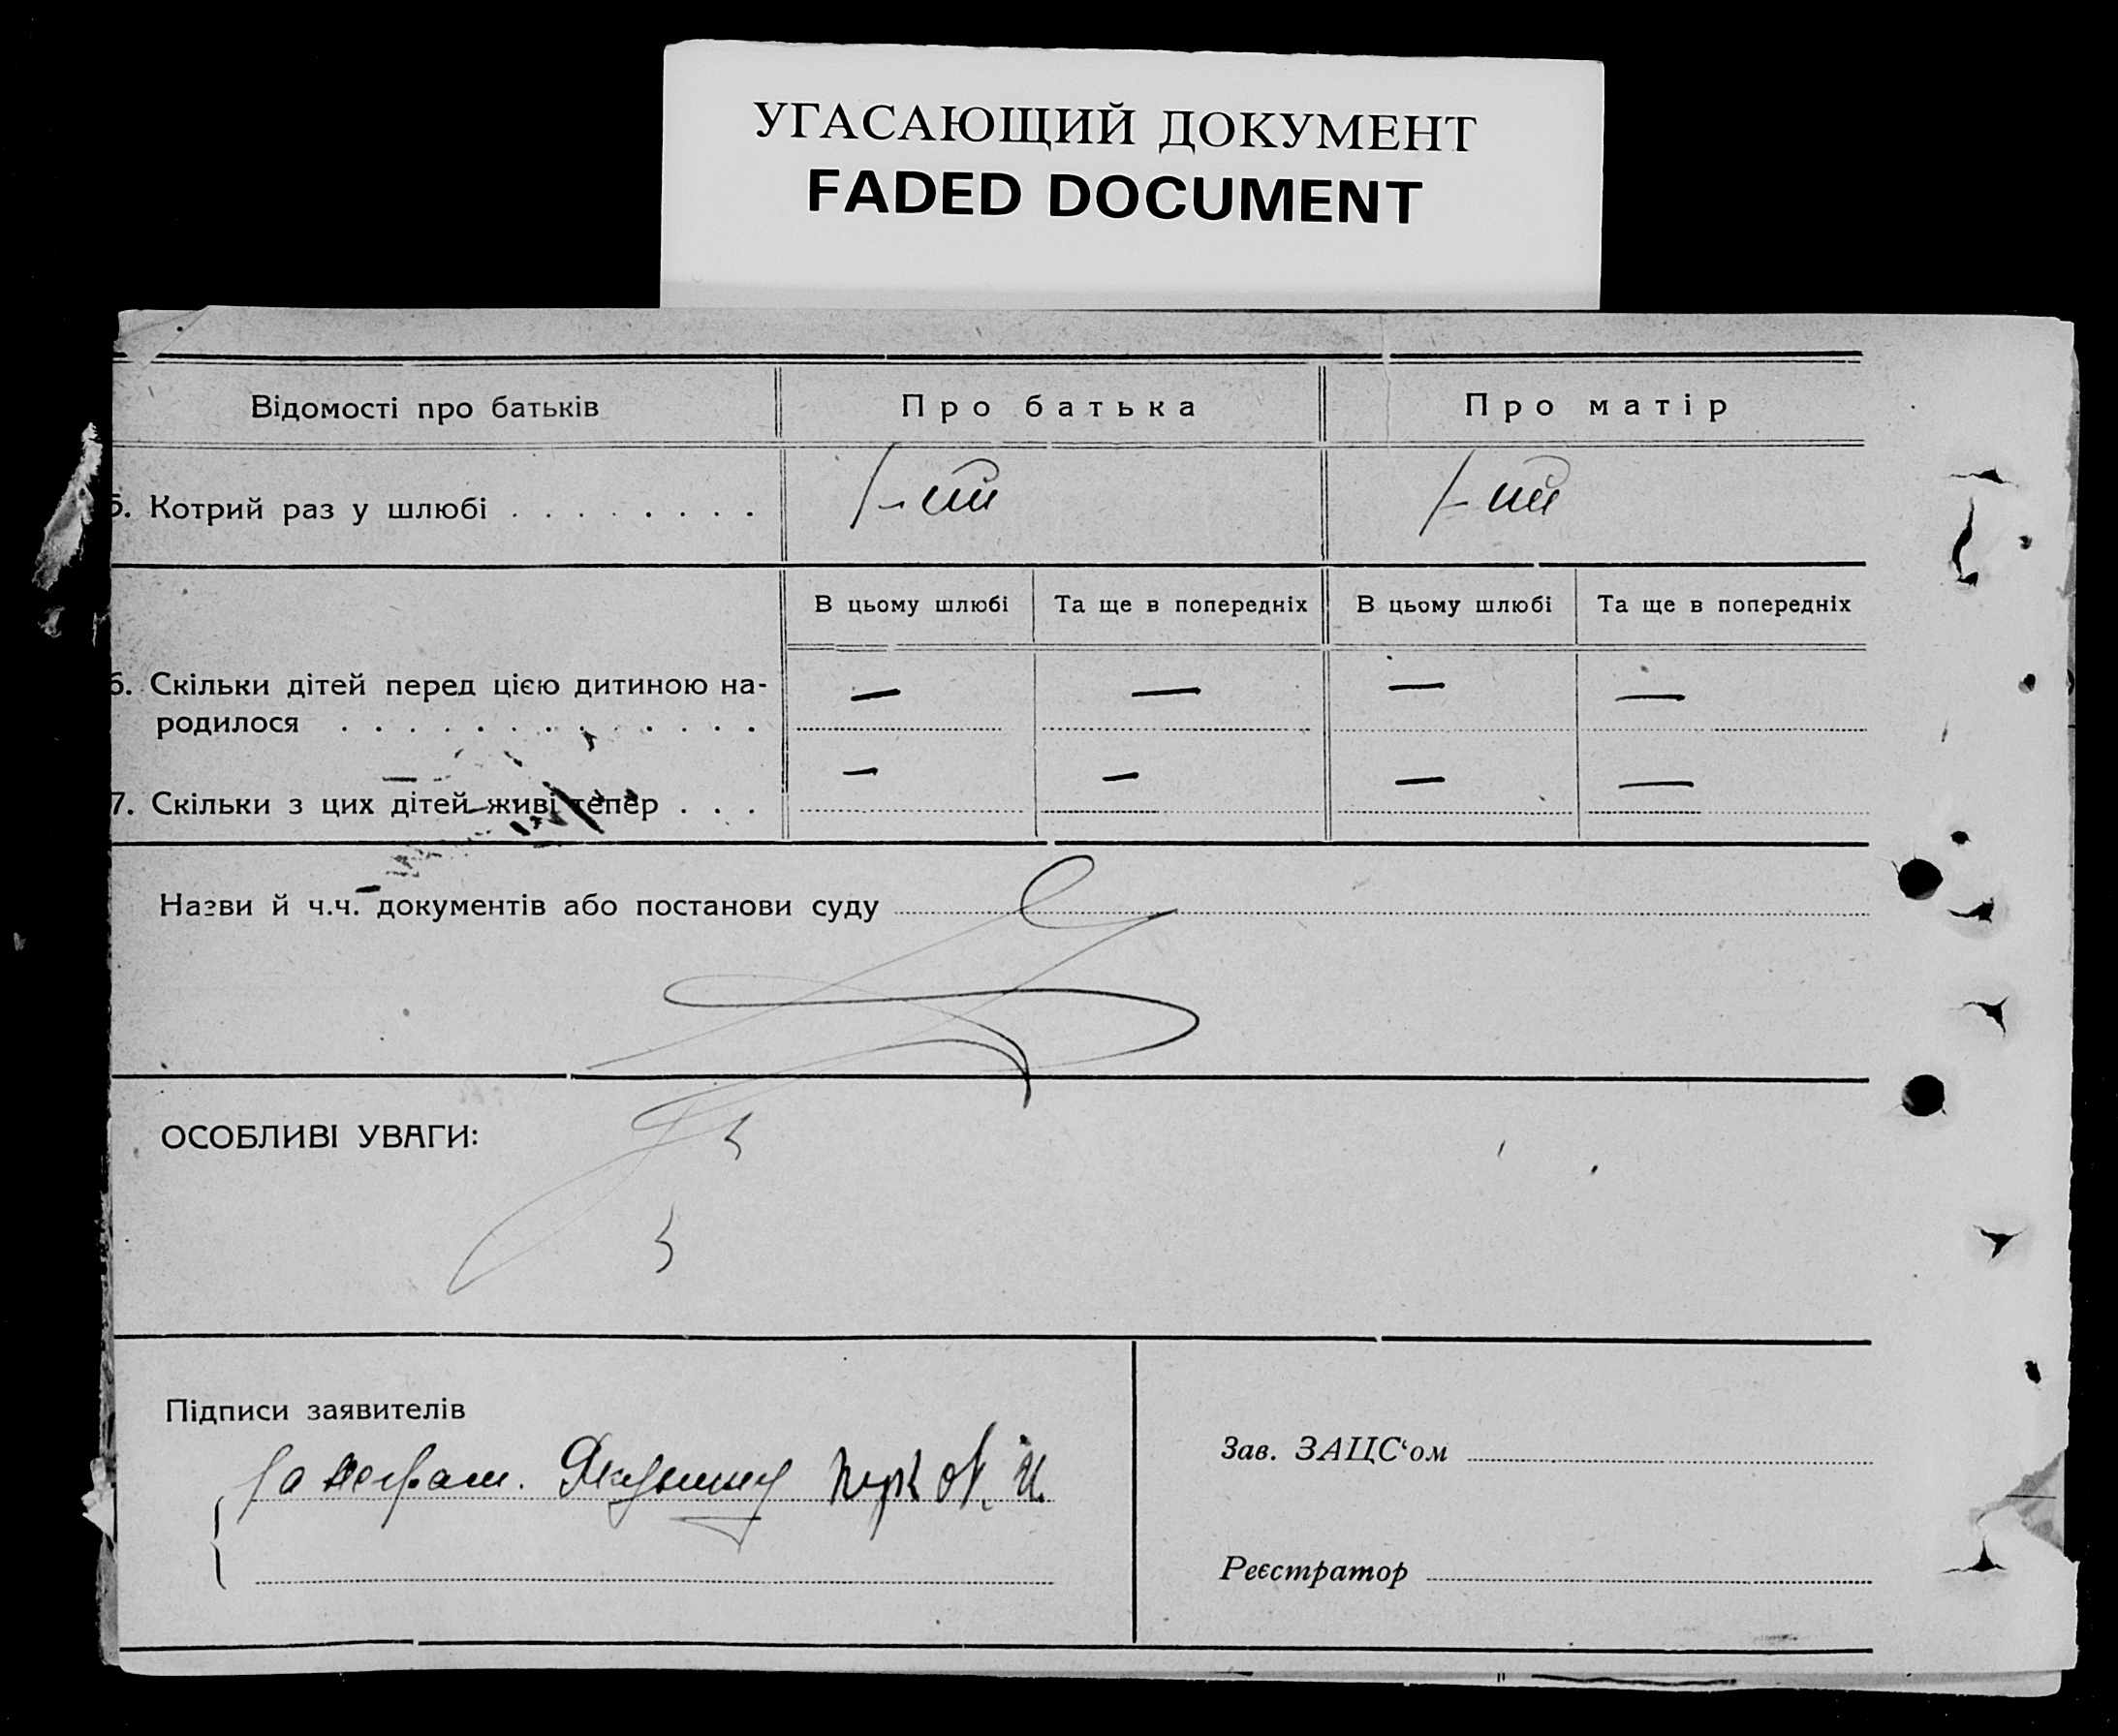 УГАСАЮЩИЙ ДОКУМЕНТ
FADED DOCUMENT
Відомості про батьків
Про батька
Про матір
5. Котрий раз у шлюбі
1-ий
1-ий
В цьому шлюбі
Та ще в попередніх
В цьому шлюбі
Та ще в попередніх
6. Скільки дітей перед цією дитиною на-
родилося
— — — —
7. Скільки з цих дітей живі тепер
— — — —
Назви й ч.ч. документів або постанови суду
ОСОБЛИВІ УВАГИ:
Підписи заявителів
Зав. ЗАЦС‘ом
Реєстратор